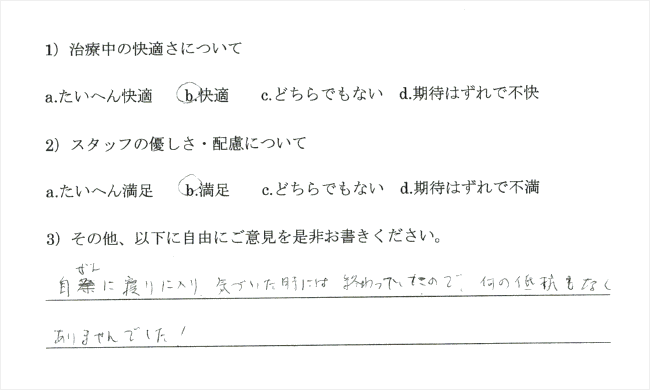 1）治療中の快適さについて
a.たいへん快適　b.快適　c.どちらでもない　d.期待はずれで不快
2）スタッフの優しさ・配慮について
a.たいへん満足　b.満足　c.どちらでもない　d.期待はずれで不満
3）その他、以下に自由にご意見を是非お書きください。
ぜん
自然に寝りに入り 気づいた時には 終わっていたので、何の低抗もなく
ありませんでした！